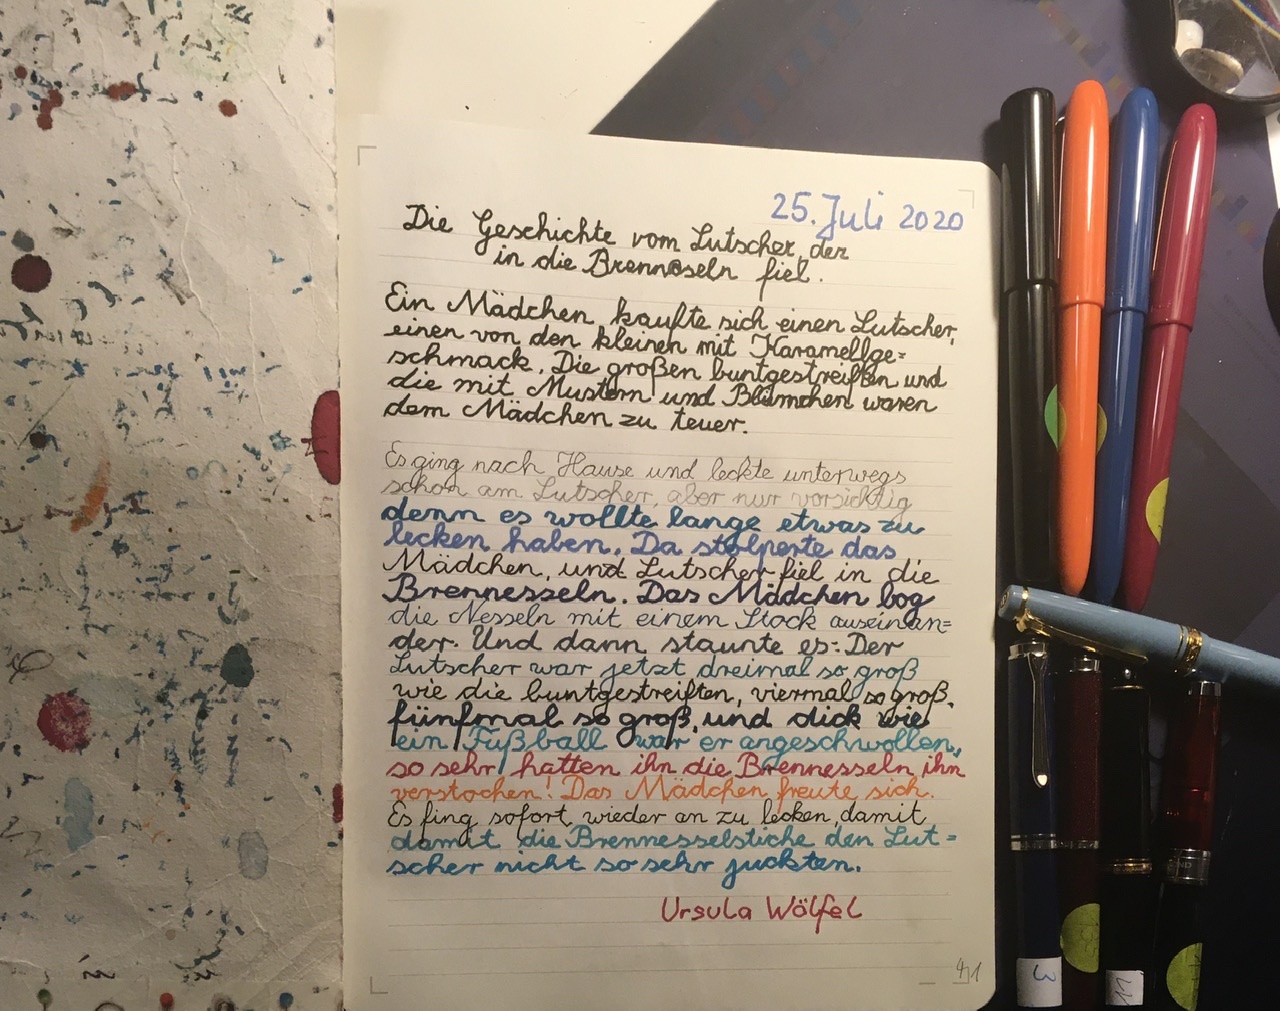 25. Juli 2020
Die Geschichte vom Lutscher, der
in die Brennesseln fiel.
Ein Mädchen kaufte sich einen Lutscher,
einen von den kleinen mit Karamellge=
schmack. Die großen buntgestreiften und
die mit Mustern und Blümchen waren
dem Mädchen zu teuer.
Es ging nach Hause und leckte unterwegs
schon am Lutscher, aber nur vorsichtig
denn es wollte lange etwas zu
lecken haben. Da stolperte das
Mädchen, und Lutscher fiel in die
Brennesseln. Das Mädchen bog
die Nesseln mit einem Stock auseinan=
der. Und dann staunte es: Der
Lutscher war jetzt dreimal so groß
wie die buntgestreiften, viermal so groß,
fünfmal so groß, und dick wie
ein Fußball war er angeschwollen,
so sehr hatten ihn die Brennesseln ihn
verstochen! Das Mädchen freute sich.
Es fing sofort wieder an zu lecken, damit
damit die Brennesselstiche den Lut=
scher nicht so sehr juckten.
Ursula Wölfel